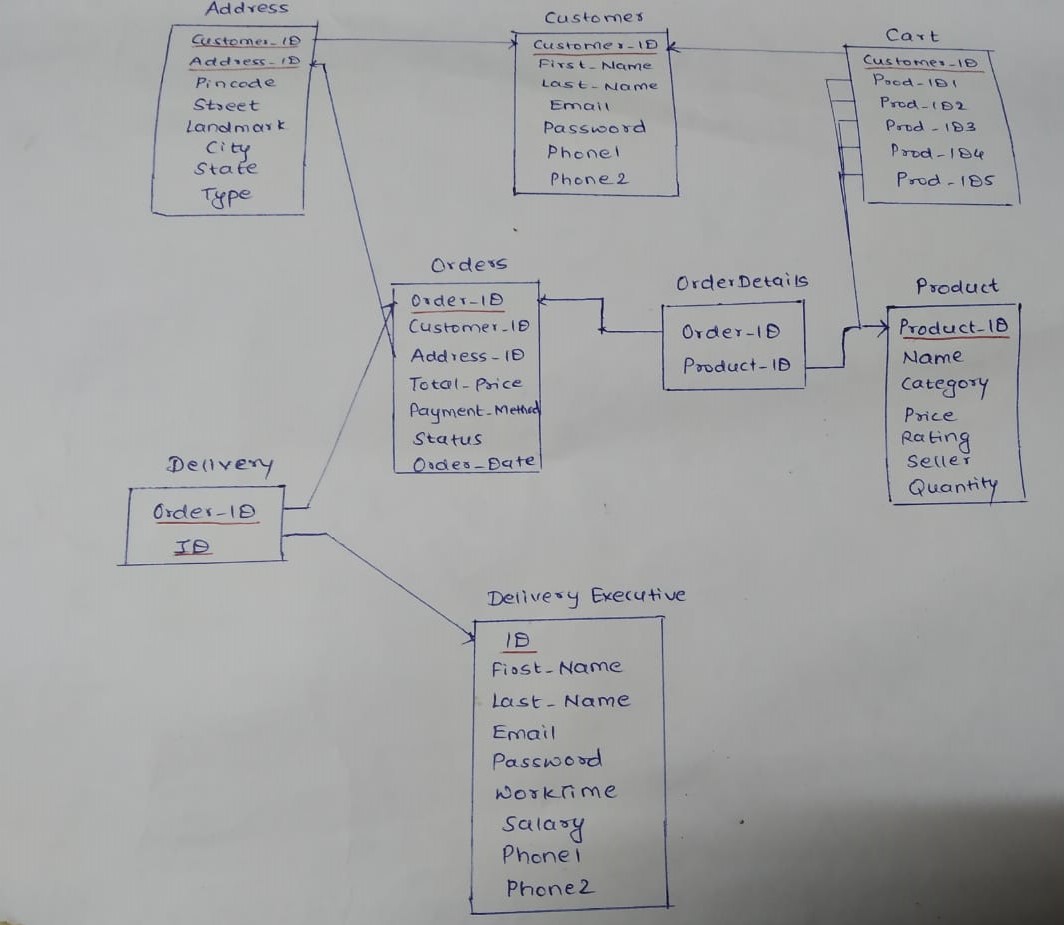 Address
Customer-ID
Address-ID
Pincode
Street
Landmark
City
State
Type
Customer
Customer-ID
First-Name
Last-Name
Email
Password
Phone1
Phone2
Cart
Customer-ID
Prod-ID1
Prod-ID2
Prod-ID3
Prod-ID4
Prod-ID5
Orders
Order-ID
Customer-ID
Address-ID
Total-Price
Payment-Method
Status
Order-Date
OrderDetails
Order-ID
Product-ID
Product
Product-ID
Name
Category
Price
Rating
Seller
Quantity
Delivery
Order-ID
ID
Delivery Executive
ID
First-Name
Last-Name
Email
Password
WorkTime
Salary
Phone1
Phone2